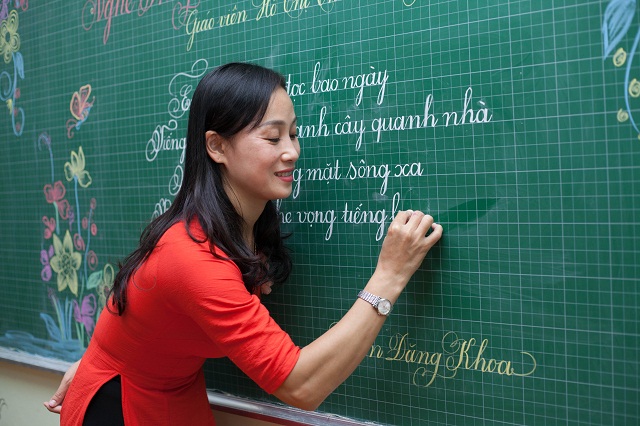 Nghe
Giáo viên Hồ Thị
ọc bao ngày
anh cây quanh nhà
g mặt sông xa
he vọng tiếng
n Đăng Khoa